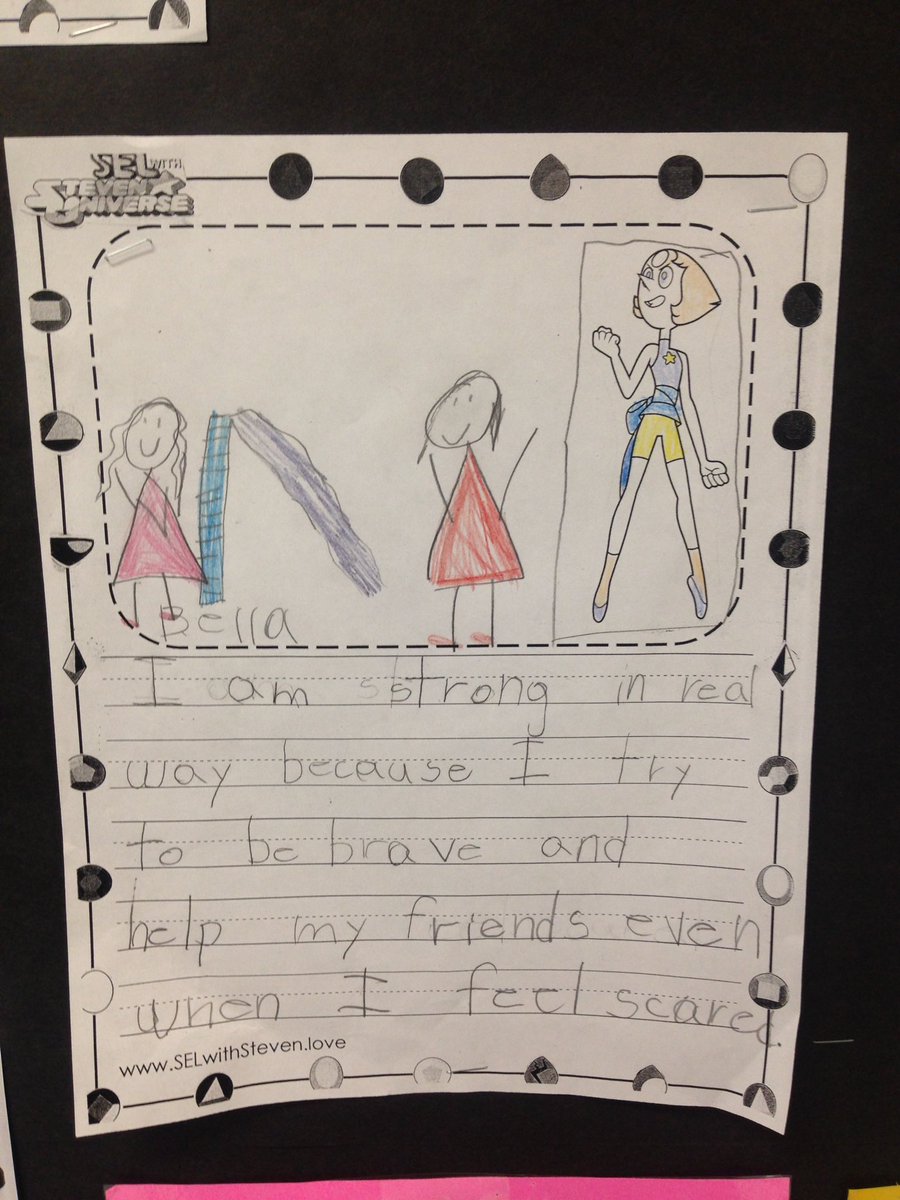 SEL WITH
STEVEN
UNIVERSE
Bella
I am strong in real
way because I try
to be brave and
help my friends even
when I feel scared.
www.SELwithSteven.love